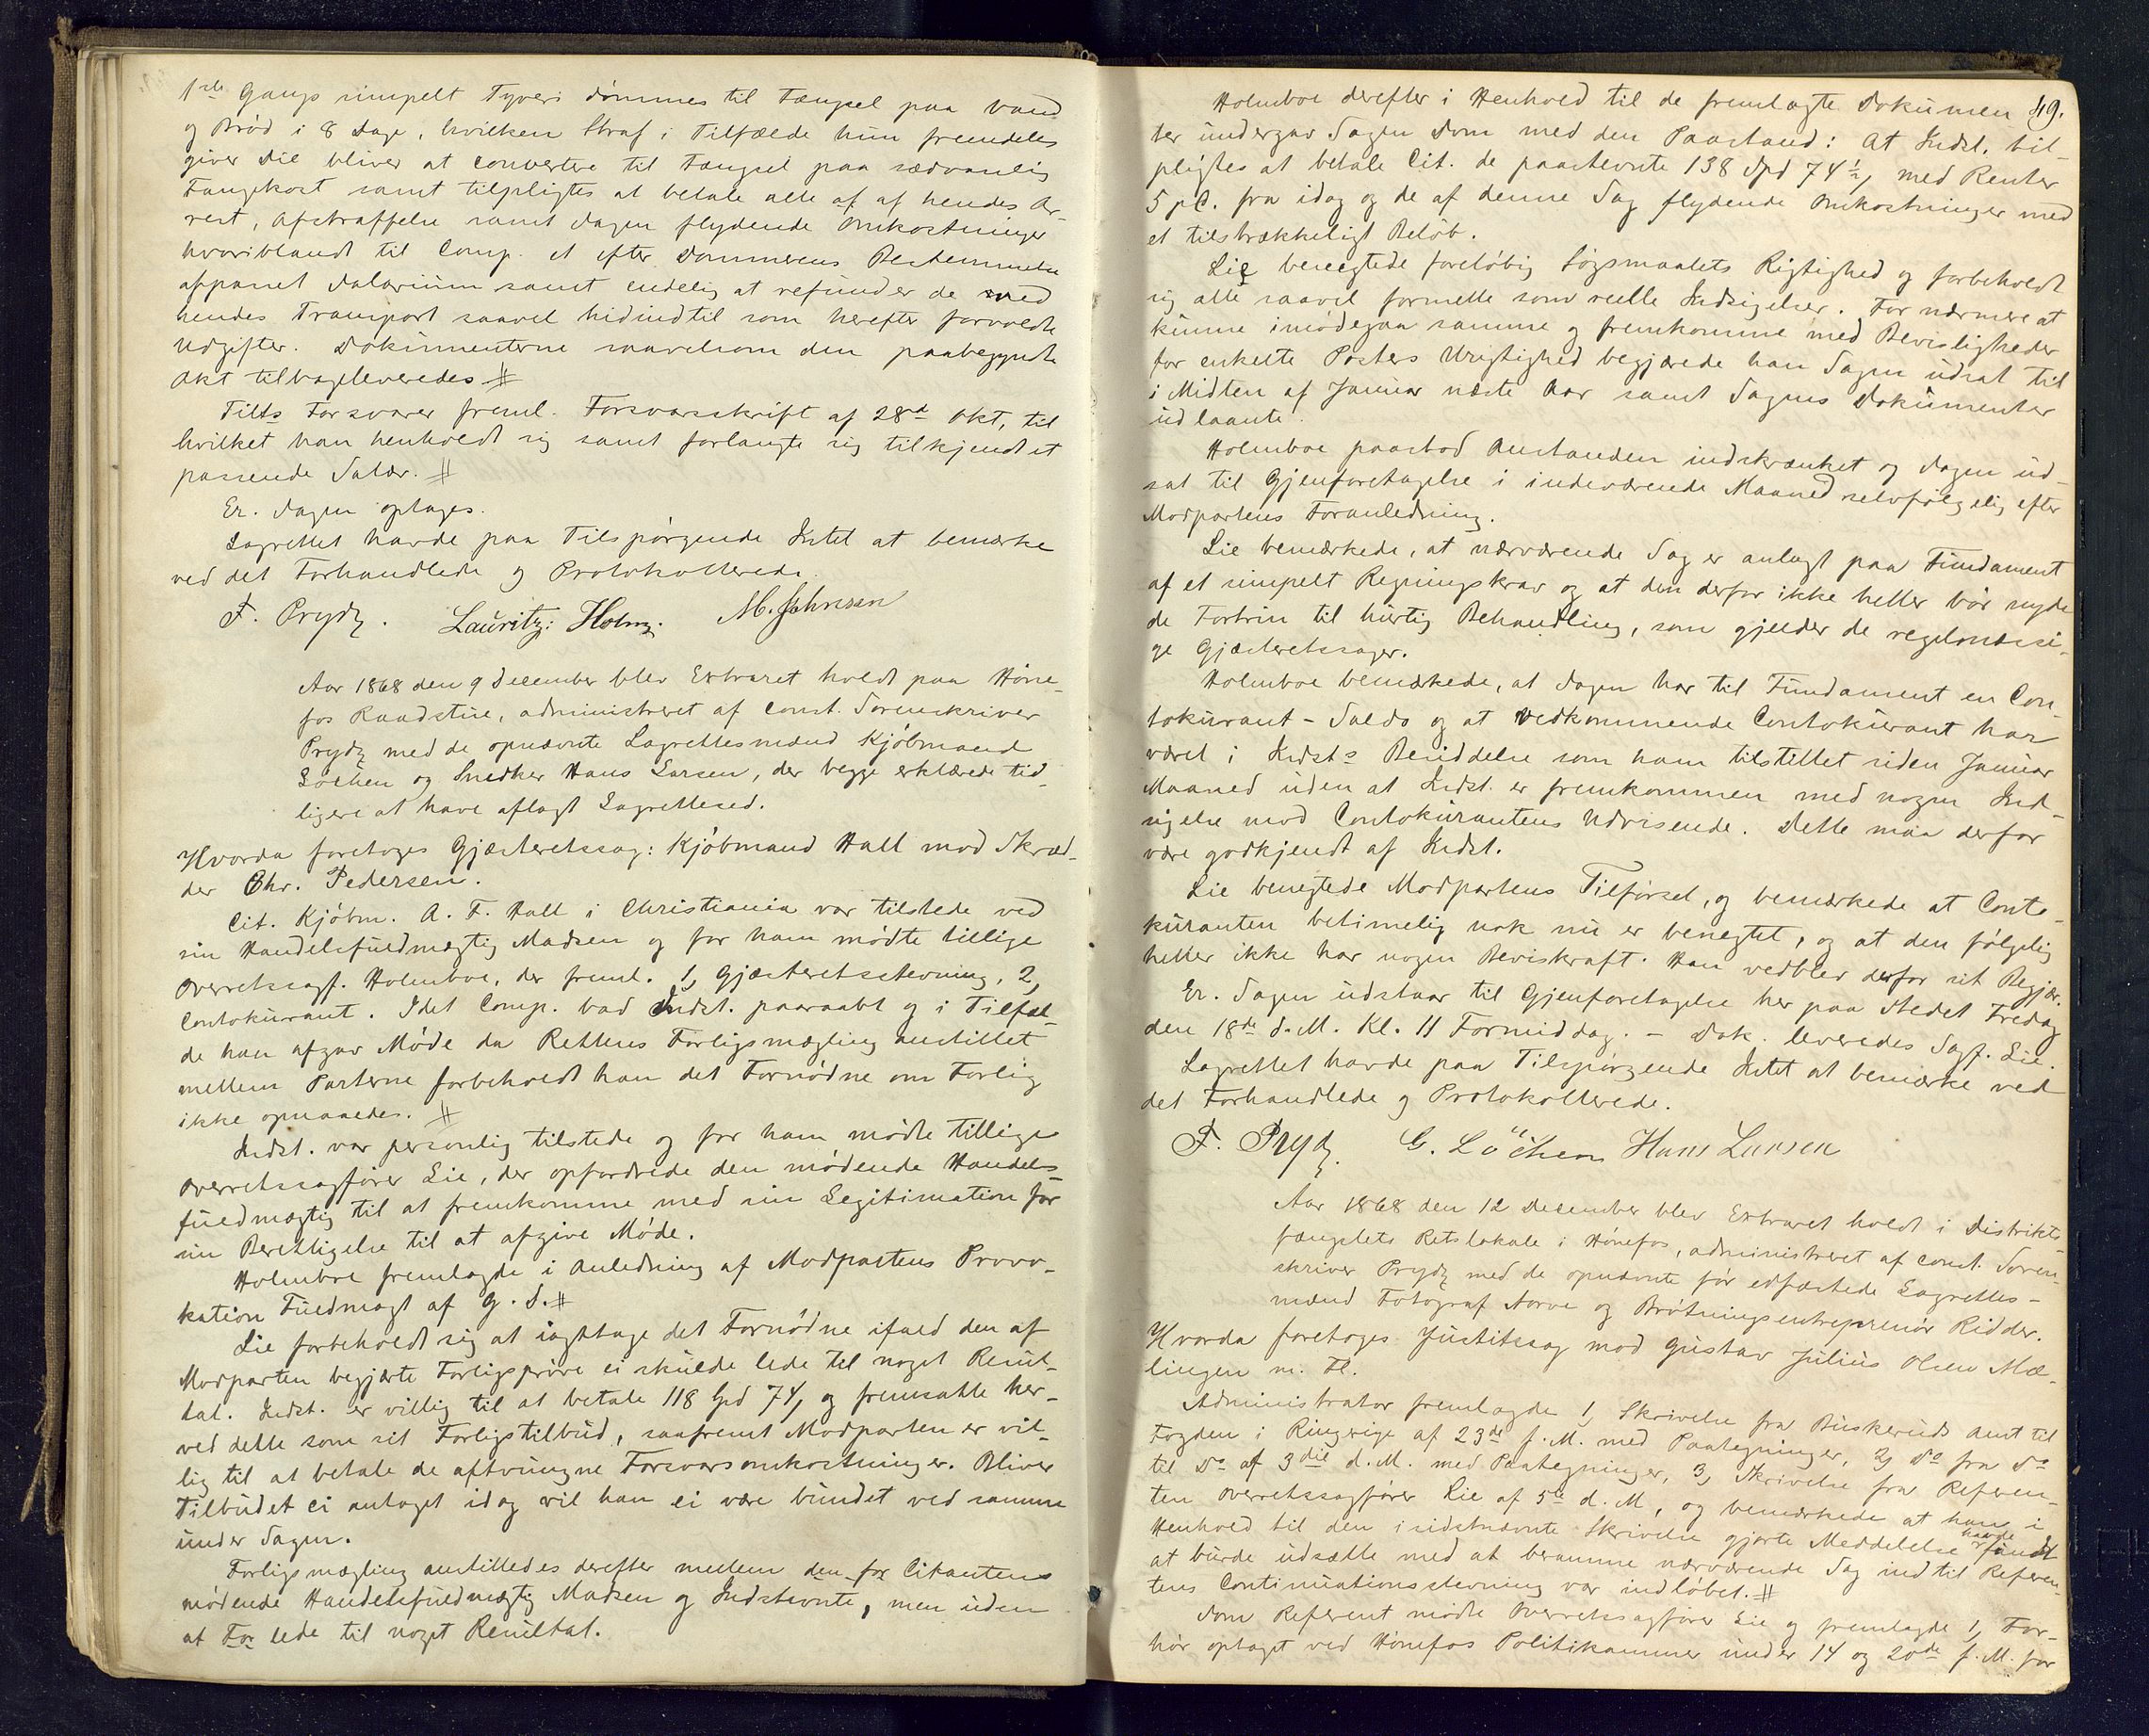 1ste Gangs simpelt Tyveri dømmes til Fængsel paa Vand
og Brød i 8 Dage, hvilken Straf i Tilfælde hun fremdeles
giver Die bliver at convertere til Fængsel paa sædvanlig
Fangekost samt tilpligtes at betale alle af af hendes Ar-
rest, Afstraffelse samt Sagen flydende Omkostninger
hvoriblandt til Comp. et efter Dommerens Bestemmelse
afpasset Salarium samt endelig at refundere de med
hendes Transport saavel hidindtil som herefter forvoldte
Udgifter. Dokumenterne saavelsom den paabegyndte
Akt tilbageleveredes #
Tilts Forsvarer freml. Forsvarsskrift af 28de Okt, til
hvilket han henholdt sig samt forlangte sig tilkjendt et
passende Salær. #
Er. Sagen optages.
Lagrettet havde paa Tilspørgende Intet at bemærke
ved det Forhandlede og Protokollerede.
F. Prydz. Lauritz: Holm. M. Johnsen
Aar 1868 den 9 December blev Extraret holdt paa Høne-
fos Raadstue, administreret af const. Sorenskriver
Prydz med de opnævnte Lagrettesmænd Kjøbmand
Løchen og Snedker Hans Larsen, der begge erklærede tid-
ligere at have aflagt Lagretteed.
Hvorda foretoges Gjæsteretssag: Kjøbmand Hall mod Skræd-
der Chr. Pedersen.
Cit. Kjøbm. A. F. Hall i Christiania var tilstede ved
sin Handelsfuldmægtig Madsen og for ham mødte tillige
Overretssagf. Holmboe, der freml. 1, Gjæsteretsstevning, 2,
Contokurant. Idet Comp. bad Indst. paaraabt og i Tilfæl-
de han afgav Møde da Rettens Forligsmægling anstillet
mellem Parterne forbeholdt han det Fornødne om Forlig
ikke opnaaedes. #
Indst. var personlig tilstede og for ham mødte tillige
Overretssagfører Lie, der opfordrede den mødende Handels-
fuldmægtig til at fremkomme med sin Legitimation for
sin Berettigelse til at afgive Møde.
Holmboe fremlagde i Anledning af Modpartens Provo-
kation Fuldmagt af g. D. #
Lie forbeholdt sig at iagttage det Fornødne ifald den af
Modparten begjærte Forligsprøve ei skulde lede til noget Resul-
tat. Indst. er villig til at betale 118 Spd 74, og fremsatte her-
ved dette som sit Forligstilbud, saafremt Modparten er vil-
lig til at betale de aftvungne Forsvarsomkostninger. Bliver
Tilbudet ei antaget idag vil han ei være bundet ved samme
under Sagen.
Forligsmægling anstilledes derefter mellem den for Citanten
mødende Handelsfuldmægtig Madsen og Indstevnte, men uden
at For lede til noget Resultat.
49.
Holmboe derefter i Henhold til de fremlagte Dokumen-
ter undergav Sagen Dom med den Paastand: At Indst. til-
pligtes at betale Cit. de paastevnte 138 Spd 74½, med Renter
5 pC. fra idag og de af denne Sag flydende Omkostninger med
et tilstrækkeligt Beløb.
Lie benegtede foreløbig Søgsmaalets Rigtighed og forbeholdt
sig alle saavel formelle som reelle Indsigelser. For nærmere at
kunne imødegaa samme og fremkomme med Bevisligheder
for enkelte Posters Urigtighed begjærede han Sagen udsat til
i Midten af Januar næste Aar samt Sagens Dokumenter
udlaante.
Holmboe paastod Anstanden indskrænket og Sagen ud-
sat til Gjenforetagelse i indeværende Maaned selvfølgelig efter
Modpartens Foranledning.
Lie bemærkede, at nærværende Sag er anlagt paa Fundament
af et simpelt Regningskrav og at den derfor ikke heller bør nyde
de Fortrin til hurtig Behandling, som gjælder de regelmæssi-
ge Gjæsteretssager.
Holmboe bemærkede, at Sagen har til Fundament en Con-
tokurant-Saldo og at vedkommende Contokurant har
været i Indsts Besiddelse som ham tilstillet siden Januar
Maaned uden at Indst. er fremkommen med nogen Ind-
sigelse mod Contokurantens Udvisende. Dette maa derfor
være godkjendt af Indst.
Lie benegtede Modpartens Tilførsel, og bemærkede at Conto-
kuranten betimelig nok nu er benegtet, og at den følgelig
heller ikke har nogen Beviskraft. Han vedblev derfor sit Begjær.
Er. Sagen udstaar til Gjenforetagelse her paa Stedet Fredag
den 18de d. M. Kl. 11 Formiddag. – Dok. leveredes Sagf. Lie.
Lagrettet havde paa Tilspørgende Intet at bemærke ved
det Forhandlede og Protokollerede.
F. Prydz. G. Löchen Hans Larsen
Aar 1868 den 12 December blev Extraret holdt i Distrikts-
fængslets Retslokale i Hønefos, administreret af const. Soren-
skriver Prydz med de opnævnte før edfæstede Lagrettes-
mænd Fotograf Norve og Brøtningsentreprenør Ridder.
Hvorda foretoges Justitssag mod Gustav Julius Olsen Mæ-
lingen m. Fl.
Administrator fremlagde 1, Skrivelse fra Buskeruds Amt til
Fogden i Ringerige af 23de f. M. med Paategninger, 2, Do fra Do
til Do af 3die d. M. med Paategninger, 3, Skrivelse fra Referen-
ten Overretssagfører Lie af 5te d. M., og bemærkede at han i
Henhold til den i sidstnævnte Skrivelse gjorte Meddelelse havde fundet
at burde udsætte med at beramme nærværende Sag indtil Referen-
tens Continuationsstevning var indløbet. #
Som Referent mødte Overretssagfører Lie og fremlagde 1, For-
hør optaget ved Hønefos Politikammer under 14 og 20de f. M. for